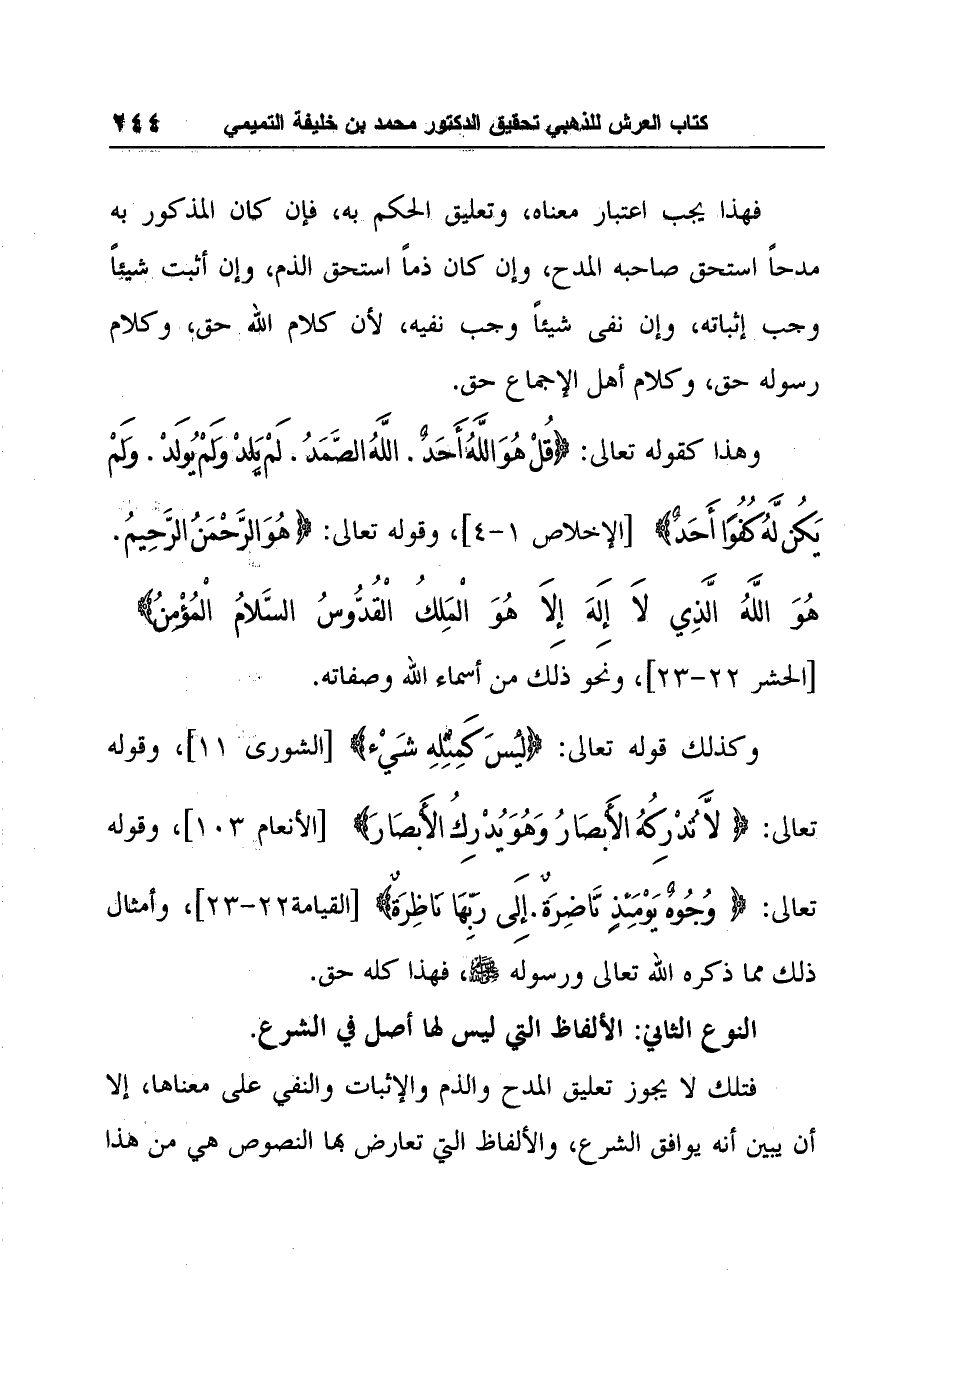 كتاب العرش للذهبي تحقيق الدكتور محمد بن خليفة التميمي ٢٤٤
فهذا يجب اعتبار معناه، وتعليق الحكم به، فإن كان المذكور به
مدحاً استحق صاحبه المدح، وإن كان ذماً استحق الذم، وإن أثبت شيئاً
وجب إثباته، وإن نفى شيئاً وجب نفيه، لأن كلام الله حق، وكلام
رسوله حق، وكلام أهل الإجماع حق.
وهذا كقوله تعالى: ﴿قُلْ هُوَ اللَّهُ أَحَدٌ . اللَّهُ الصَّمَدُ . لَمْ يَلِدْ وَلَمْ يُولَدْ . وَلَمْ
يَكُن لَّهُ كُفُوًا أَحَدٌ﴾ [الإخلاص ١-٤]، وقوله تعالى: ﴿هُوَ الرَّحْمَنُ الرَّحِيمُ.
هُوَ اللَّهُ الَّذِي لَا إِلَهَ إِلاَّ هُوَ الْمَلِكُ الْقُدُّوسُ السَّلَامُ الْمُؤْمِنُ﴾
[الحشر ٢٢-٢٣]، ونحو ذلك من أسماء الله وصفاته.
وكذلك قوله تعالى: ﴿لَيْسَ كَمِثْلِهِ شَيْء﴾ [الشورى ١١]، وقوله
تعالى: ﴿لاَّ تُدْرِكُهُ الأَبصَارُ وَهُوَ يُدْرِكُ الأَبصَارَ﴾ [الأنعام ١٠٣]، وقوله
تعالى: ﴿وُجُوهٌ يَوْمَئِذٍ نَّاضِرَةٌ.إِلَى رَبِّهَا نَاظِرَةٌ﴾ [القيامة٢٢-٢٣]، وأمثال
ذلك مما ذكره الله تعالى ورسوله ﷺ، فهذا كله حق.
النوع الثاني: الألفاظ التي ليس لها أصل في الشرع.
فتلك لا يجوز تعليق المدح والذم والإثبات والنفي على معناها، إلا
أن يبين أنه يوافق الشرع، والألفاظ التي تعارض بها النصوص هي من هذا